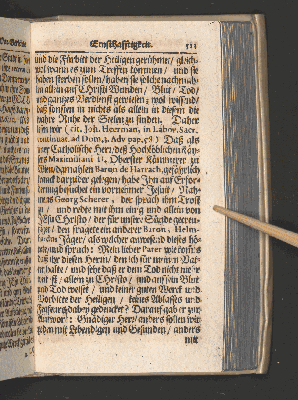 Ernsthafftigkeit. 513
und die Fürbitt der Heiligen gerühmt / gleich
wol wann es zum Treffen kommen / und sie
haben sterben sollen / haben sie solche nachmah-
ln allein auf Christi Wunden / Blut / Tod /
und gantzes Verdienst gewiesen; wol wissend /
daß sonsten in nichts als allein in diesen die
wahre Ruhe der Seelen zu finden. Daher
lesen wir (cit. Joh. Heerman, in Labor. Sacr.
continuat. ad Dom. 2. Adv. pag. 58) Daß als
der Catholische Herr / deß Hochlöblichen Käy-
sers Maximiliani II. Oberster Kämmerer zu
Wien / damahlen Baron de Harrach, gefährlich
kranck darnieder gelegen / habe Ihn auf Erfor-
derung besuchet ein vornehmer Jesuit / Nah-
mens Georg Scherer, der sprach ihm Trost
zu / und redte mit ihm eintzig und allein von
JEsu Christo / der für unsere Sünde gecreu-
tziget / den fragete ein anderer Baron, Helm-
hard Jäger / als welcher anwesend dieses hö-
rete / und sprach: Mein lieber Pater wie kömt's
daß ihr diesen Herrn / den ich für meinen Vat-
ter halte / und sehe daß er dem Tod nicht mehr
weit ist / allein zu Christo / und auf sein Blut
und Tod weiset / und keiner guten Werck und
Vorbitte der Heiligen / keines Ablasses und
Fegfeuers dabey gedencket? Darauf gab er zur
Antwort: Gnädiger Herr / anders sollen wir
reden mit Lebendigen und Gesunden / anders
mit